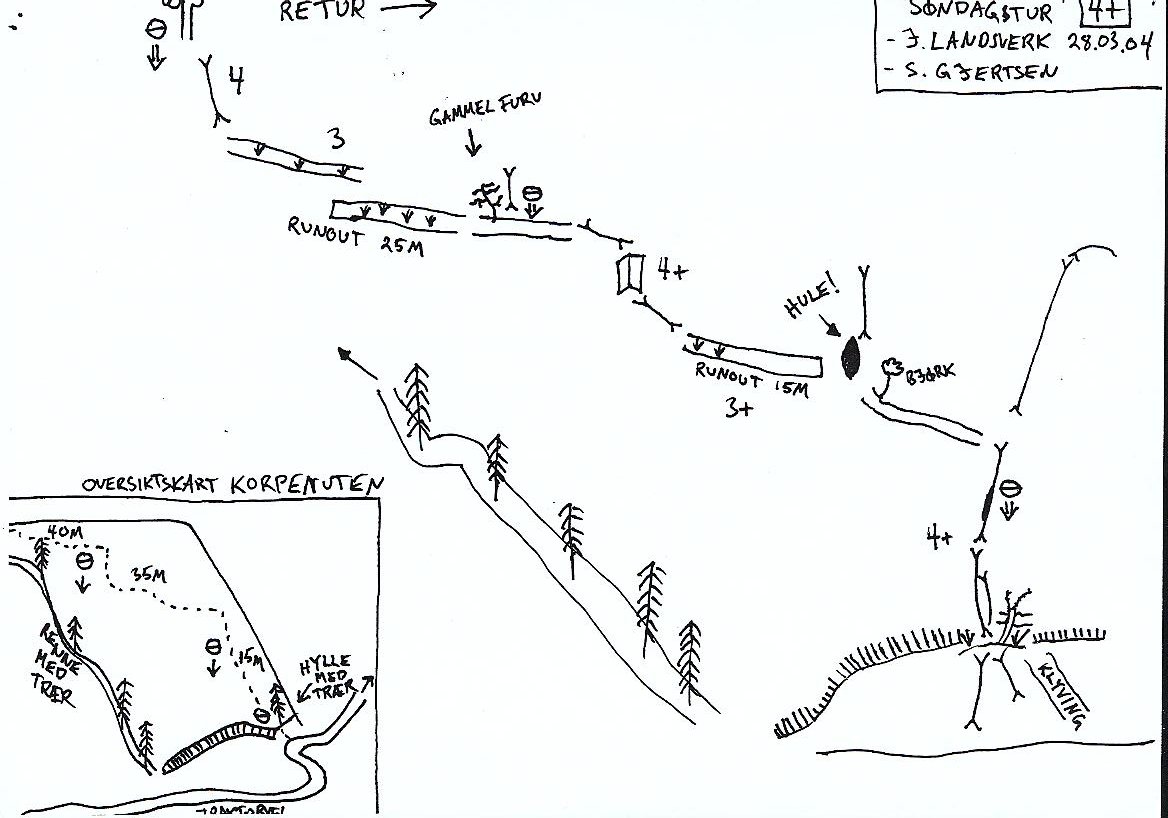 RETUR
SØNDAGSTUR 4+
- J. LANDSVERK 28.03.04
- S. GJERTSEN
4
3
GAMMEL FURU
RUNOUT 25M
4+
HULE!
BJØRK
RUNOUT 15M
3+
4+
KLYVING
OVERSIKTSKART KORPENUTEN
40M
35M
15M
RENNE
MED
TRÆR
HYLLE
MED
TRÆR